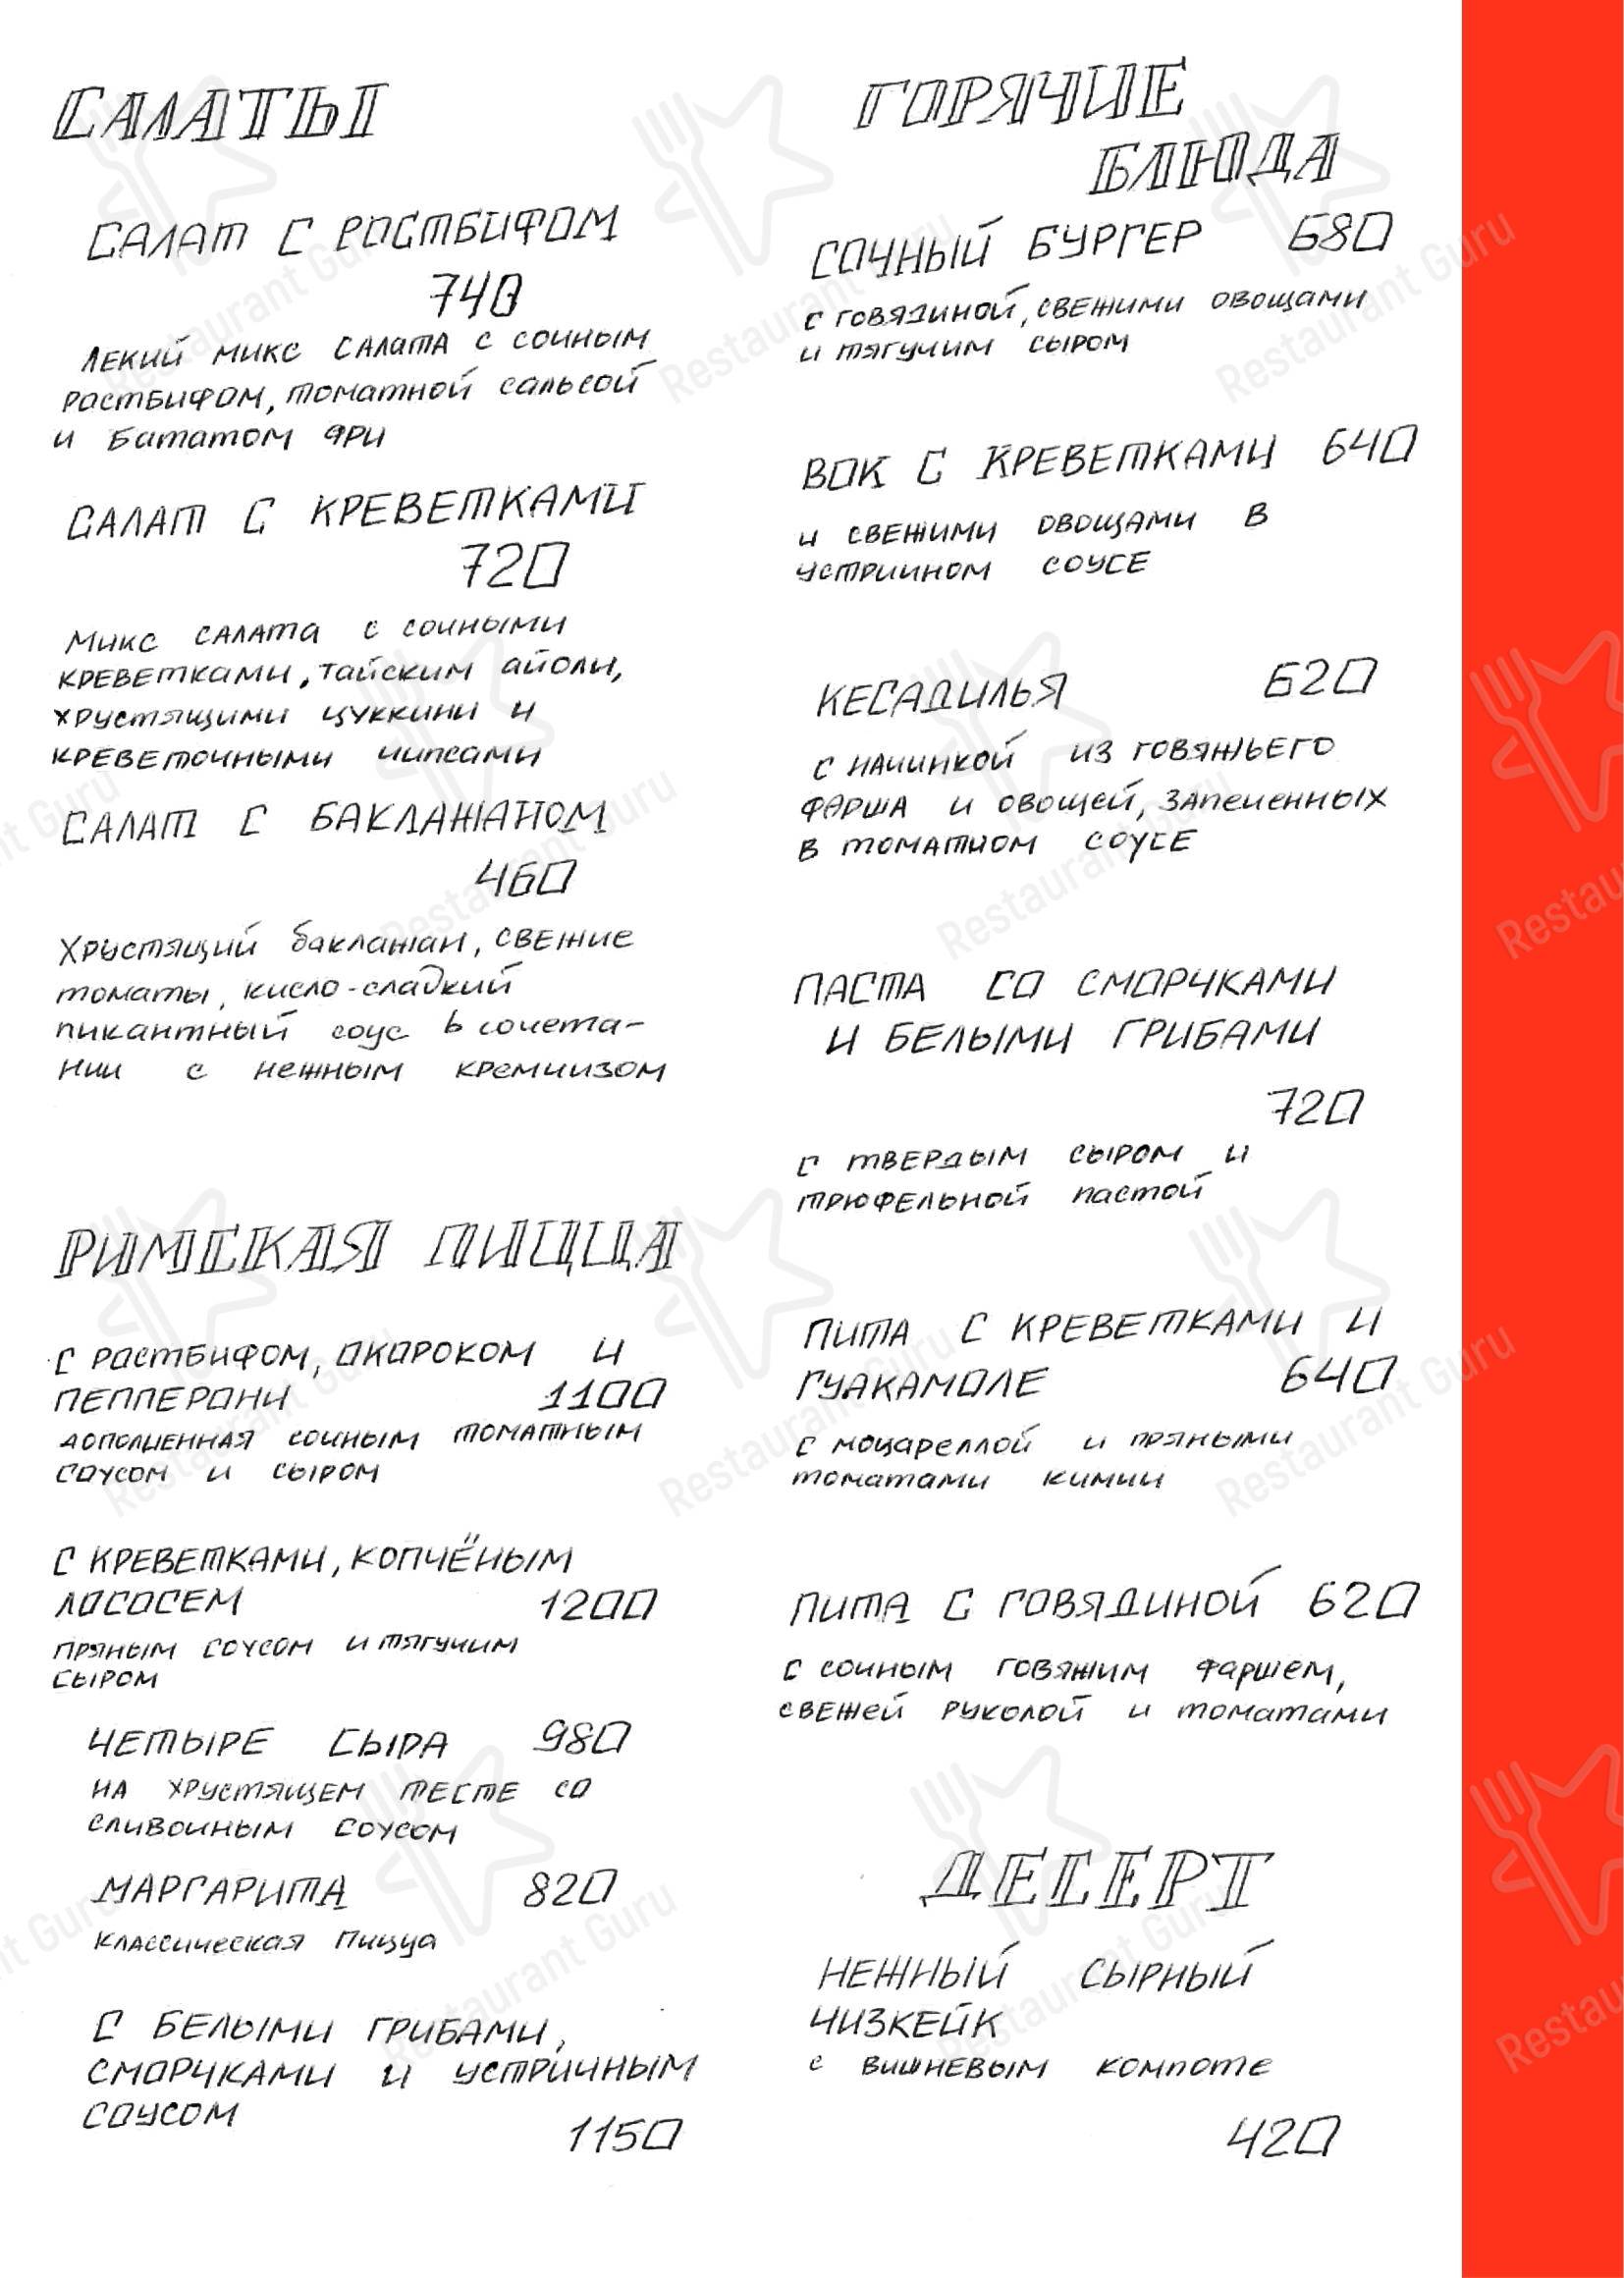 САЛАТЫ
САЛАТ С РОСТБИФОМ
740
ЛЕКИЙ МИКС САЛАТА С СОЧНЫМ
РОСТБИФОМ, ТОМАТНОЙ САЛЬСОЙ
И БАТАТОМ ФРИ
САЛАТ С КРЕВЕТКАМИ
720
МИКС САЛАТА С СОЧНЫМИ
КРЕВЕТКАМИ, ТАЙСКИМ АЙОЛИ,
ХРУСТЯЩИМИ ЦУККИНИ И
КРЕВЕТОЧНЫМИ ЧИПСАМИ
САЛАТ С БАКЛАЖАНОМ
460
Хрустящий баклажан, СВЕЖИЕ
томаты, кисло-сладкий
пикантный соус в сочета-
нии с нежным кремчизом
РИМСКАЯ ПИЦЦА
С РОСТБИФОМ, ОКОРОКОМ И
ПЕППЕРОНИ 1100
ДОПОЛНЕННАЯ СОЧНЫМ ТОМАТНЫМ
СОУСОМ И СЫРОМ
С КРЕВЕТКАМИ, КОПЧЁНЫМ
ЛОСОСЕМ 1200
ПРЯНЫМ СОУСОМ И ТЯГУЧИМ
СЫРОМ
ЧЕТЫРЕ СЫРА 980
НА ХРУСТЯЩЕМ ТЕСТЕ СО
СЛИВОЧНЫМ СОУСОМ
МАРГАРИТА 820
КЛАССИЧЕСКАЯ ПИЦЦА
С БЕЛЫМИ ГРИБАМИ,
СМОРЧКАМИ И УСТРИЧНЫМ
СОУСОМ
1150
ГОРЯЧИЕ
БЛЮДА
СОЧНЫЙ БУРГЕР 680
С ГОВЯДИНОЙ, СВЕЖИМИ ОВОЩАМИ
И ТЯГУЧИМ СЫРОМ
ВОК С КРЕВЕТКАМИ 640
И СВЕЖИМИ ОВОЩАМИ В
УСТРИЧНОМ СОУСЕ
КЕСАДИЛЬЯ 620
С НАЧИНКОЙ ИЗ ГОВЯЖЬЕГО
ФАРША И ОВОЩЕЙ, ЗАПЕЧЕННЫХ
В ТОМАТНОМ СОУСЕ
ПАСТА СО СМОРЧКАМИ
И БЕЛЫМИ ГРИБАМИ
720
С ТВЕРДЫМ СЫРОМ И
ТРЮФЕЛЬНОЙ ПАСТОЙ
ПИТА С КРЕВЕТКАМИ И
ГУАКАМОЛЕ 640
С МОЦАРЕЛЛОЙ И ПРЯНЫМИ
ТОМАТАМИ КИМЧИ
ПИТА С ГОВЯДИНОЙ 620
С СОЧНЫМ ГОВЯЖИМ ФАРШЕМ,
СВЕЖЕЙ РУКОЛОЙ И ТОМАТАМИ
ДЕСЕРТ
НЕЖНЫЙ СЫРНЫЙ
ЧИЗКЕЙК
С ВИШНЕВЫМ КОМПОТЕ
420
Restaurant Guru